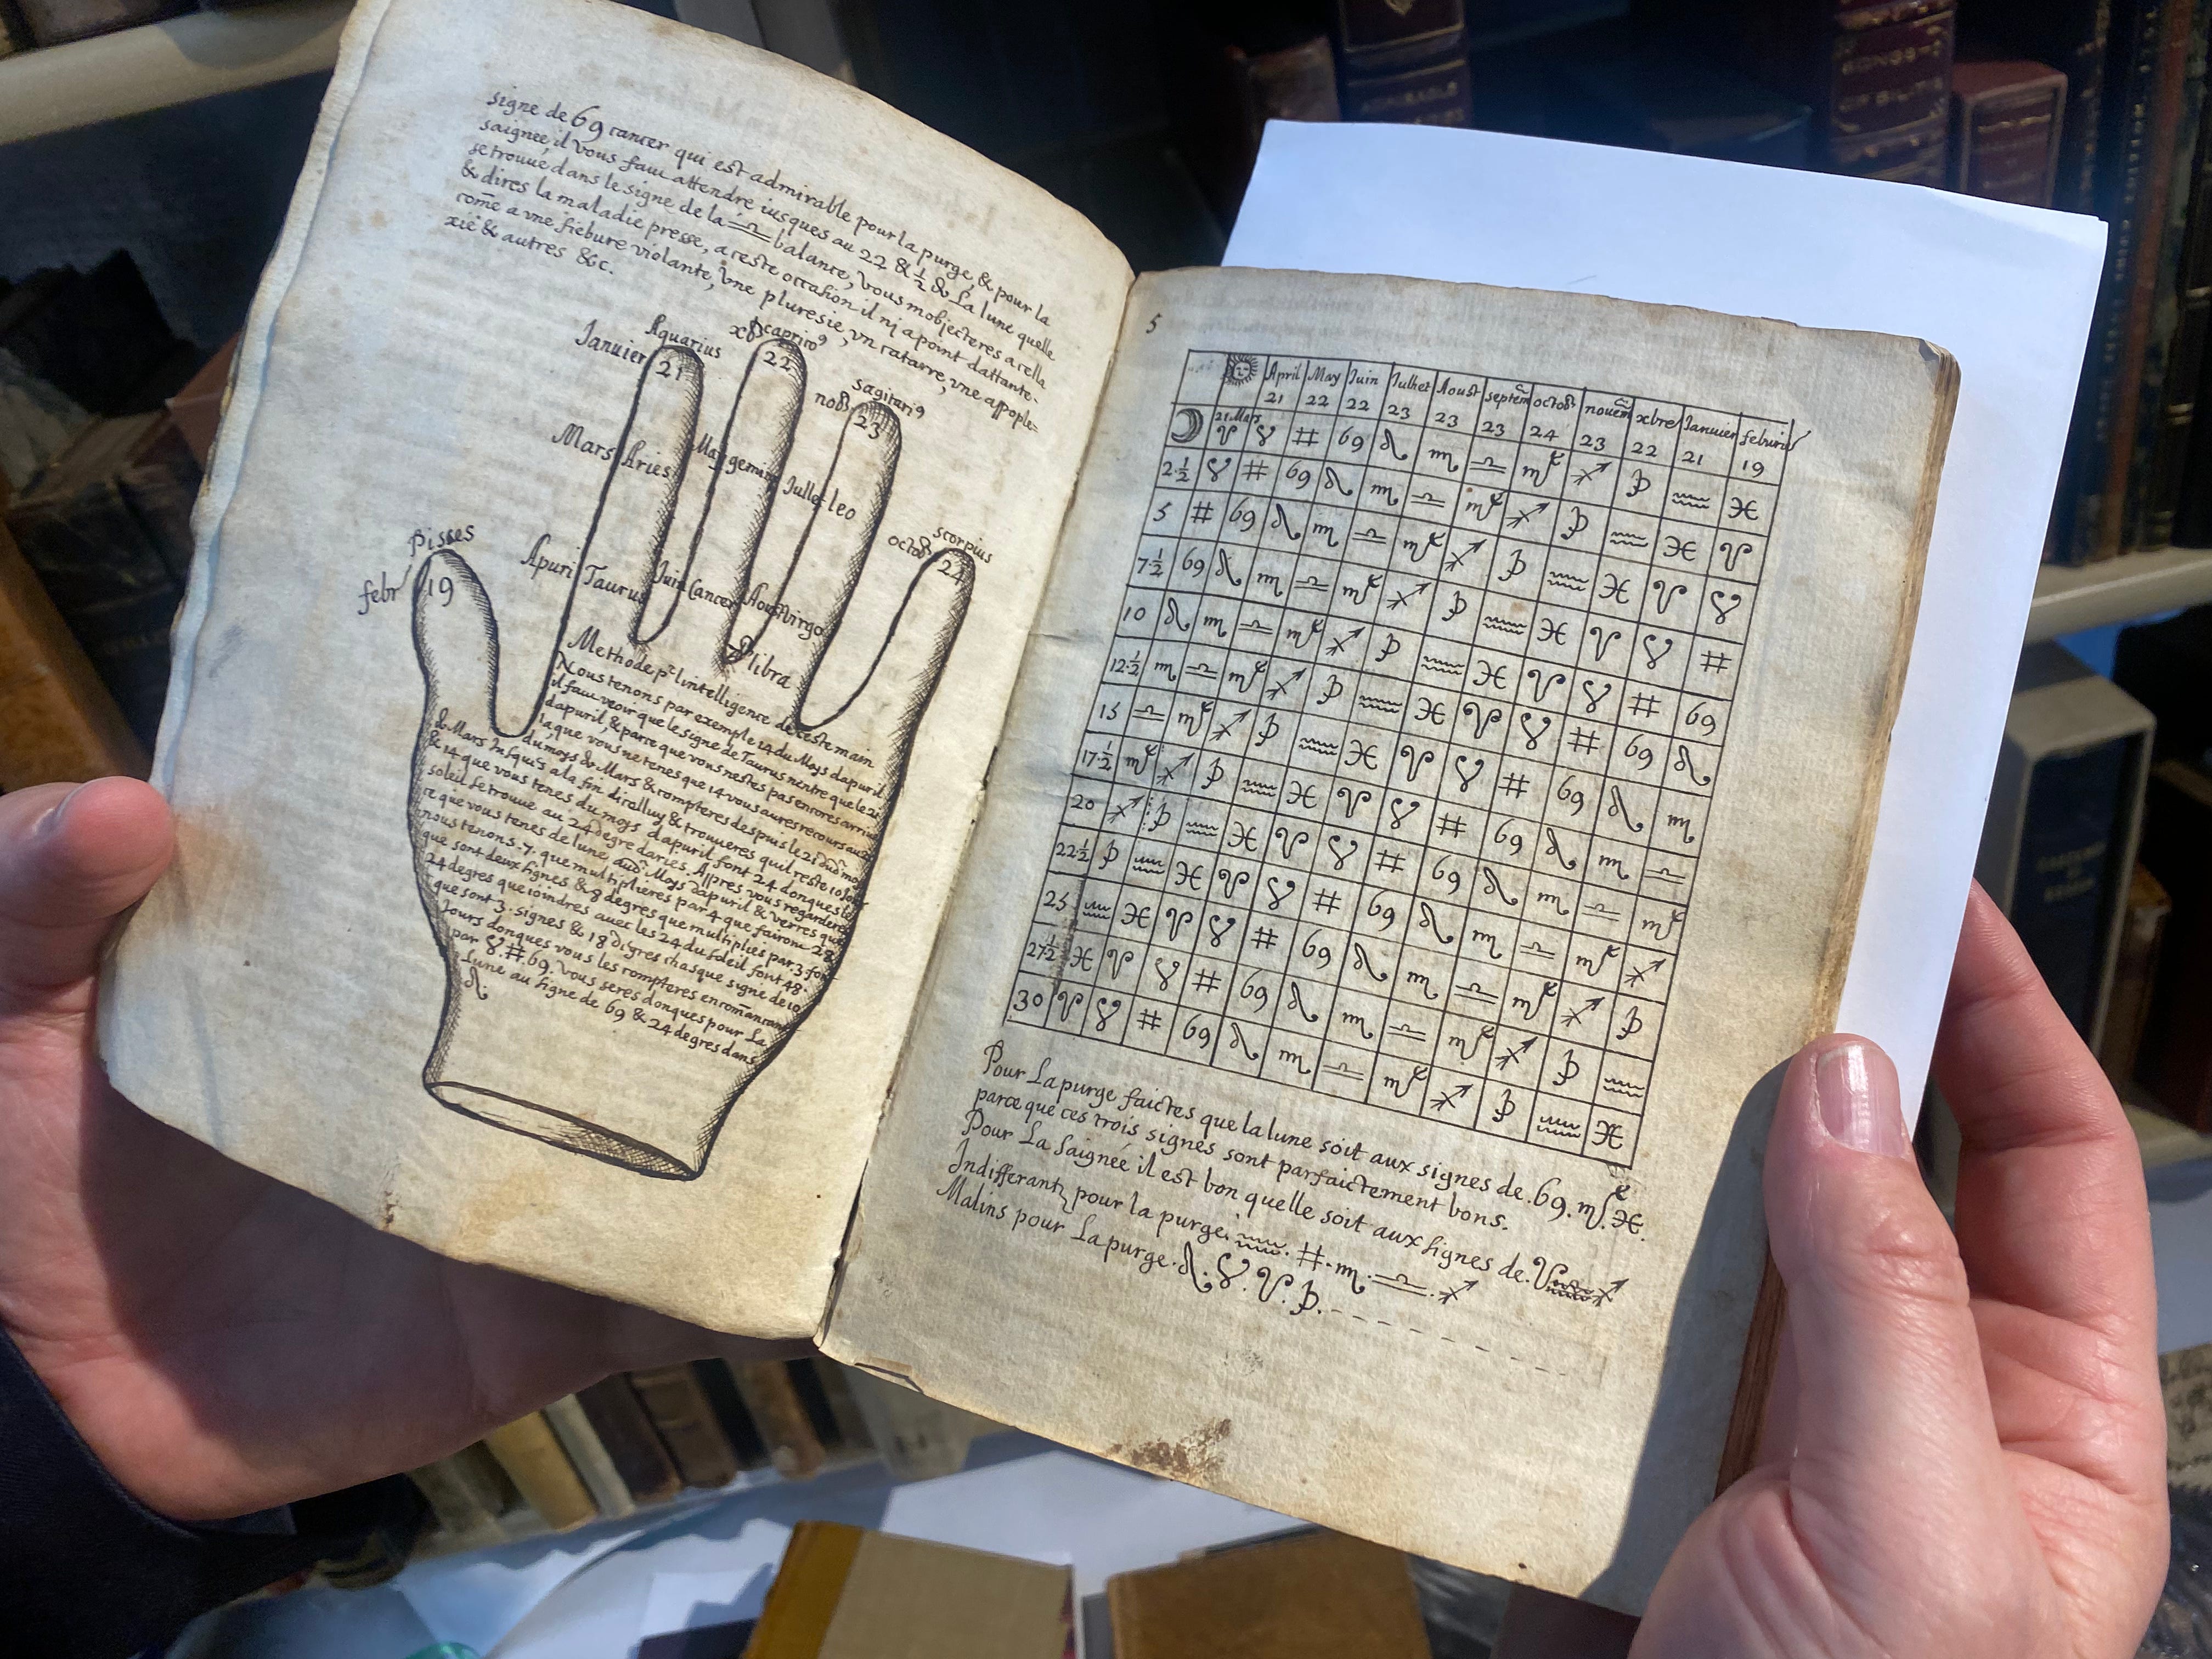 signe de 69 cancer qui est admirable pour la purge, & pour la
saignée, il vous faut attendre iusques au 22 & ½ & La lune quelle
se trouue dans le signe de la ♎ balance, vous mobjecteres a cella
& dires la maladie presse, a ceste occasion il nj a point dattante.
come a vne fiebure violante, vne pluresie, vn catarre, vne appople=
xiē & autres &c.
Aquarius
Januier
21
caprico⁹
22
sagitari⁹
23
scorpius
24
Pisses
febr
19
Mars Aries
May gemin
Jullet leo
Apuri Taurus
Juin Cancer
Aoust Virgo
libra
Methode pr lintelligence de ceste main
Nous tenons par exemple 14 du Moys dapuril
il faut veoir que le signe de Taurus nentre que le 21
dapuril, & parce que vous nestes pas encores arriue
la, que vous ne tenes que 14 vous aures recours au 21
du moys de Mars & compteres despuis le 21 dud moys
de Mars Jusqu's a la fin dicelluy & trouueres quil reste 10 Jors
& 14 que vous tenes du moys dapuril font 24. donques le
soleil se trouue au 24 degre daries. Appres vous regarderes
ce que vous tenes de lune, aud Moys dapuril & verres que
nous tenons .7. que multiplieres par 4 que fairont 28
que sont deux signes & 8 degres que multiplies par .3. font
24 degres que ioindres auec les 24 du soleil font 48.
que sont 3. signes & 18 degres chasque signe de 10
Jours donques vous les compteres en comancant
par ♉. #. 69. vous seres donques pour La
Lune au signe de 69 & 24 degres dans
♌.
5
April May Juin Julhet Aoust septem octob nouem xbre Januier feburier
21 22 22 23 23 23 24 23 22 21 19
21. Mars
♈ ♉ # 69 ♌ ♍ ♎ ♏ ♐ ♑ ♒ ♓
2·½ ♉ # 69 ♌ ♍ ♎ ♏ ♐ ♑ ♒ ♓ ♈
5 # 69 ♌ ♍ ♎ ♏ ♐ ♑ ♒ ♓ ♈ ♉
7·½ 69 ♌ ♍ ♎ ♏ ♐ ♑ ♒ ♓ ♈ ♉ #
10 ♌ ♍ ♎ ♏ ♐ ♑ ♒ ♓ ♈ ♉ # 69
12·½ ♍ ♎ ♏ ♐ ♑ ♒ ♓ ♈ ♉ # 69 ♌
15 ♎ ♏ ♐ ♑ ♒ ♓ ♈ ♉ # 69 ♌ ♍
17·½ ♏ ♐ ♑ ♒ ♓ ♈ ♉ # 69 ♌ ♍ ♎
20 ♐ ♑ ♒ ♓ ♈ ♉ # 69 ♌ ♍ ♎ ♏
22·½ ♑ ♒ ♓ ♈ ♉ # 69 ♌ ♍ ♎ ♏ ♐
25 ♒ ♓ ♈ ♉ # 69 ♌ ♍ ♎ ♏ ♐ ♑
27½ ♓ ♈ ♉ # 69 ♌ ♍ ♎ ♏ ♐ ♑ ♒
30 ♈ ♉ # 69 ♌ ♍ ♎ ♏ ♐ ♑ ♒ ♓
Pour La purge faictes que la lune soit aux signes de .69. ♏. ♓.
parce que ces trois signes sont parfaictement bons.
Pour La Saignée il est bon quelle soit aux signes de. ♈ ♐
Indifferantz pour la purge. ♒. #. ♍. ♎. ♐
Malins pour La purge. ♌. ♉. ♈. ♑.